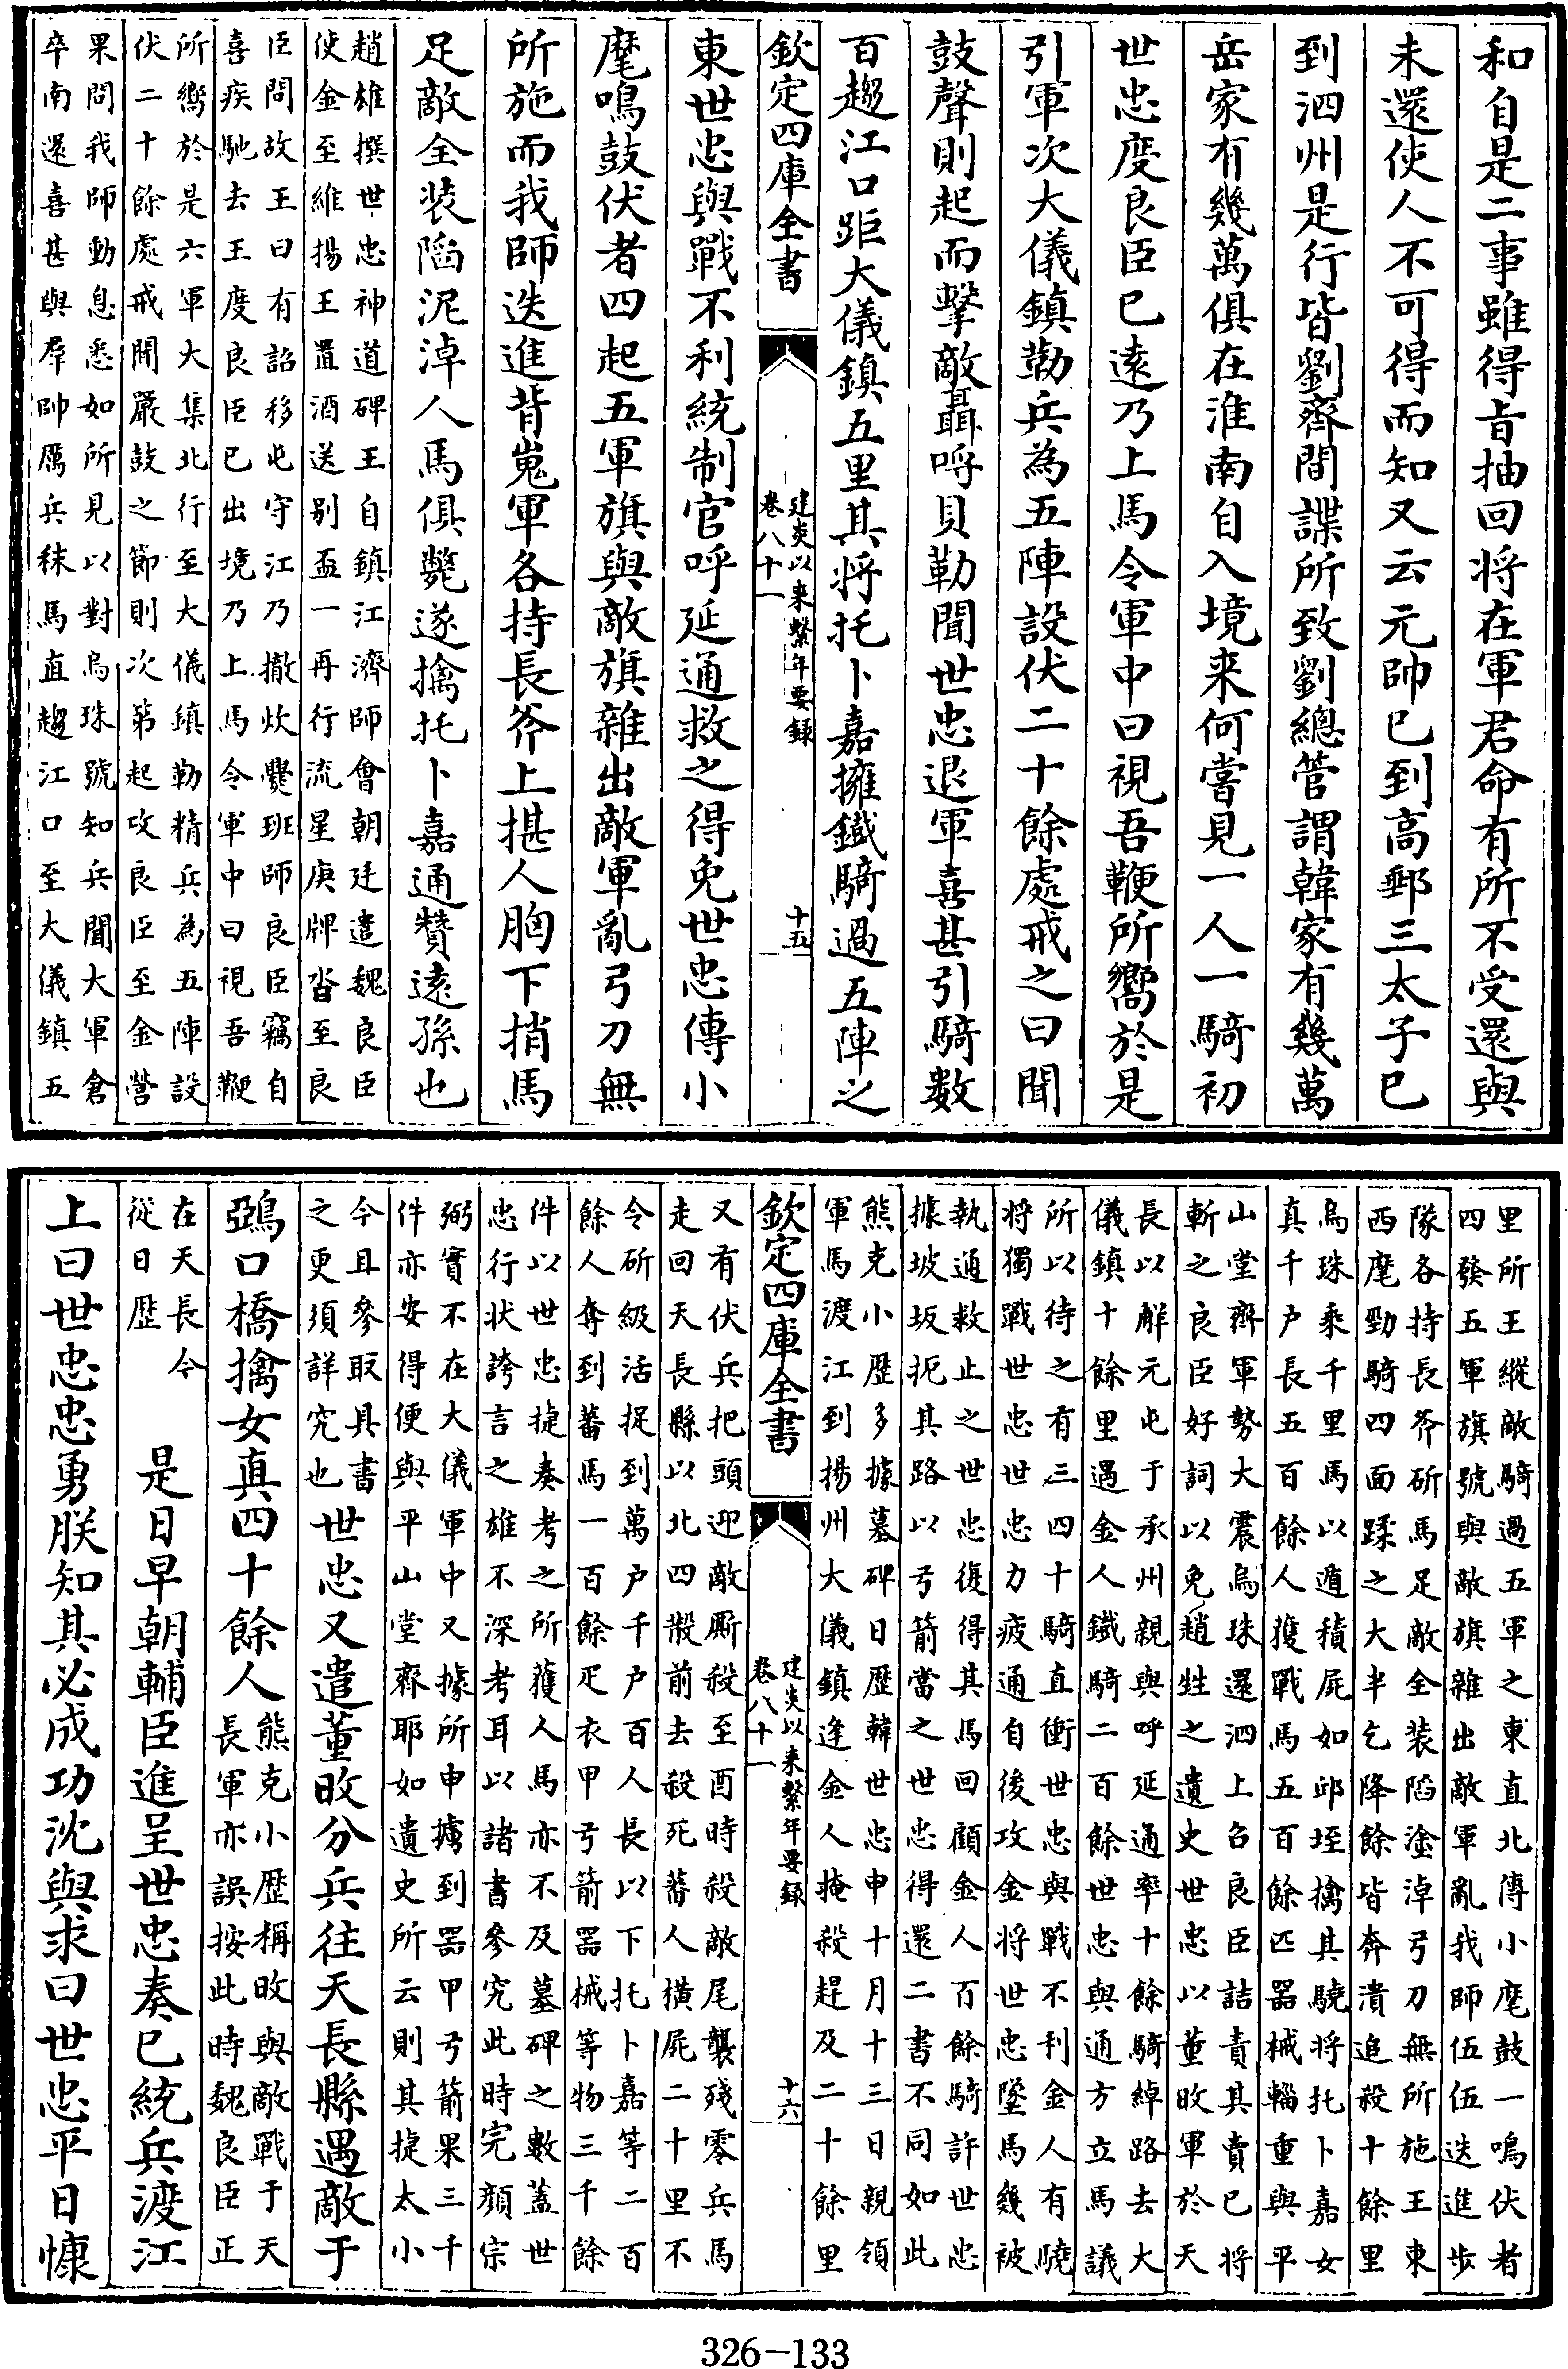 和自是二事雖得旨抽回将在軍君命有所不受還與
未還使人不可得而知又云元帥已到高郵三太子已
到泗州是行皆劉齊間諜所致劉總管謂韓家有幾萬
岳家有幾萬俱在淮南自入境来何嘗見一人一騎初
世忠度良臣已遠乃上馬令軍中曰視吾鞭所嚮於是
引軍次大儀鎮勒兵為五陣設伏二十餘處戒之曰聞
鼓聲則起而擊敵聶呼貝勒聞世忠退軍喜甚引騎數
百趨江口距大儀鎮五里其将托卜嘉擁鐵騎過五陣之
欽定四庫全書
建炎以来繫年要録
卷八十一
十五
東世忠與戰不利統制官呼延通救之得免世忠傳小
麾鳴鼓伏者四起五軍旗與敵旗雜出敵軍亂弓刀無
所施而我師迭進背嵬軍各持長斧上揕人胸下捎馬
足敵全装陷泥淖人馬俱斃遂擒托卜嘉通贊遠孫也
趙雄撰世忠神道碑王自鎮江濟師會朝廷遣魏良臣
使金至維揚王置酒送别盃一再行流星庚牌沓至良
臣問故王曰有詔移屯守江乃撤炊爨班師良臣竊自
喜疾馳去王度良臣已出境乃上馬令軍中曰視吾鞭
所嚮於是六軍大集北行至大儀鎮勒精兵為五陣設
伏二十餘處戒聞嚴鼓之節則次第起攻良臣至金營
果問我師動息悉如所見以對烏珠號知兵聞大軍倉
卒南還喜甚與羣帥厲兵秣馬直趨江口至大儀鎮五
里所王縱敵騎過五軍之東直北傳小麾鼓一鳴伏者
四發五軍旗號與敵旗雜出敵軍亂我師伍伍迭進步
隊各持長斧斫馬足敵全装陷塗淖弓刀無所施王東
西麾勁騎四面蹂之大半乞降餘皆奔潰追殺十餘里
烏珠乘千里馬以遁積屍如邱垤擒其驍将托卜嘉女
真千户長五百餘人獲戰馬五百餘匹器械輜重與平
山堂齊軍勢大震烏珠還泗上召良臣詰責其賣已将
斬之良臣好詞以免趙甡之遺史世忠以董旼軍於天
長以解元屯于承州親與呼延通率十餘騎綽路去大
儀鎮十餘里遇金人鐵騎二百餘世忠與通方立馬議
所以待之有三四十騎直衝世忠與戰不利金人有驍
将獨戰世忠世忠力疲通自後攻金将世忠墜馬幾被
執通救止之世忠復得其馬回顧金人百餘騎許世忠
據坡坂扼其路以弓箭當之世忠得還二書不同如此
熊克小歴多據墓碑日歴韓世忠申十月十三日親領
軍馬渡江到揚州大儀鎮逢金人掩殺趕及二十餘里
欽定四庫全書
建炎以来繫年要録
卷八十一
十六
又有伏兵把頭迎敵厮殺至酉時殺敵尾襲殘零兵馬
走回天長縣以北四散前去殺死蕃人横屍二十里不
令斫級活捉到萬户千户百人長以下托卜嘉等二百
餘人奪到蕃馬一百餘疋衣甲弓箭器械等物三千餘
件以世忠捷奏考之所獲人馬亦不及墓碑之數蓋世
忠行状誇言之雄不深考耳以諸書參究此時完顔宗
弼實不在大儀軍中又據所申擄到器甲弓箭果三千
件亦安得便與平山堂齊耶如遺史所云則其捷太小
今且參取具書
之更須詳究也
世忠又遣董旼分兵往天長縣遇敵于
鵶口橋擒女真四十餘人
熊克小歴稱旼與敵戰于天
長軍亦誤按此時魏良臣正
在天長今
從日歴
是日早朝輔臣進呈世忠奏已統兵渡江
上曰世忠忠勇朕知其必成功沈與求曰世忠平日慷
326-133